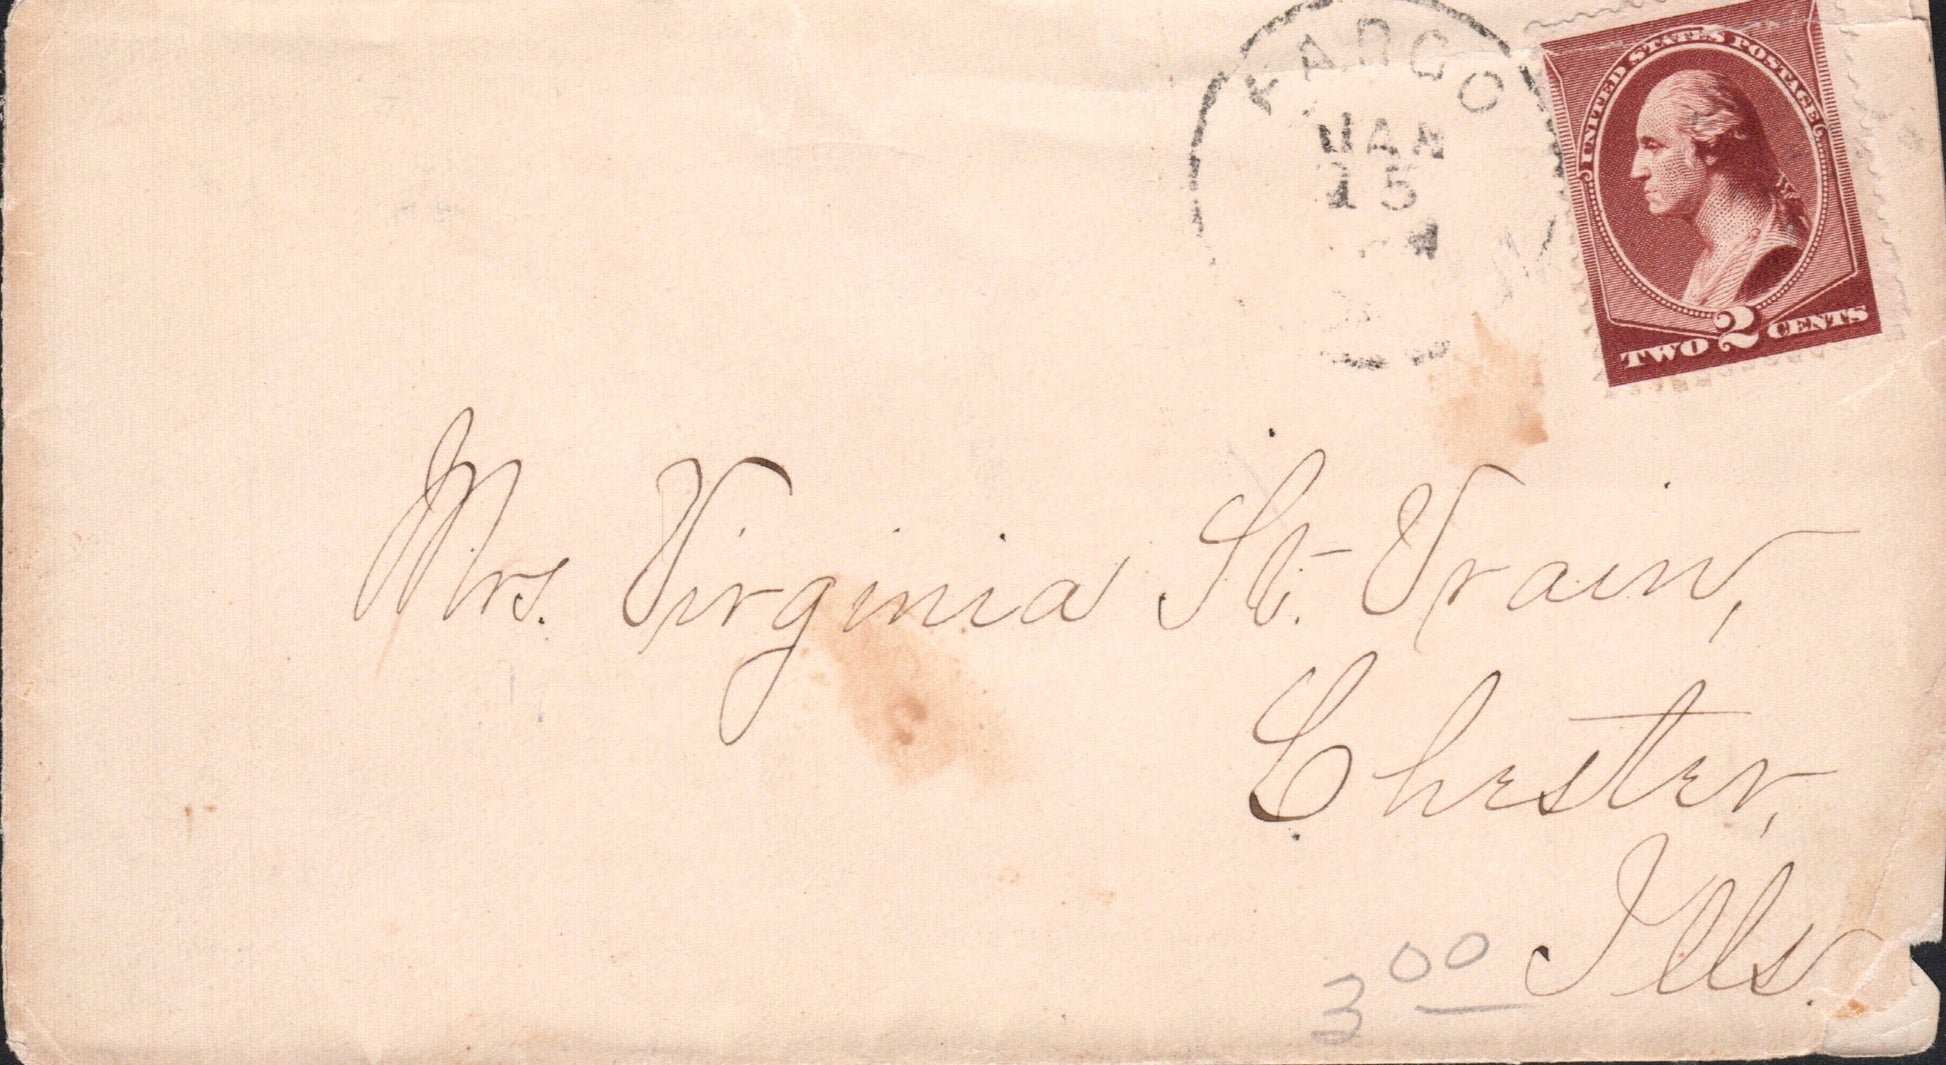 FARGO
JAN
15
UNITED STATES POSTAGE
TWO 2 CENTS
Mrs. Virginia St. Vrain,
Chester,
Ills.
3 00